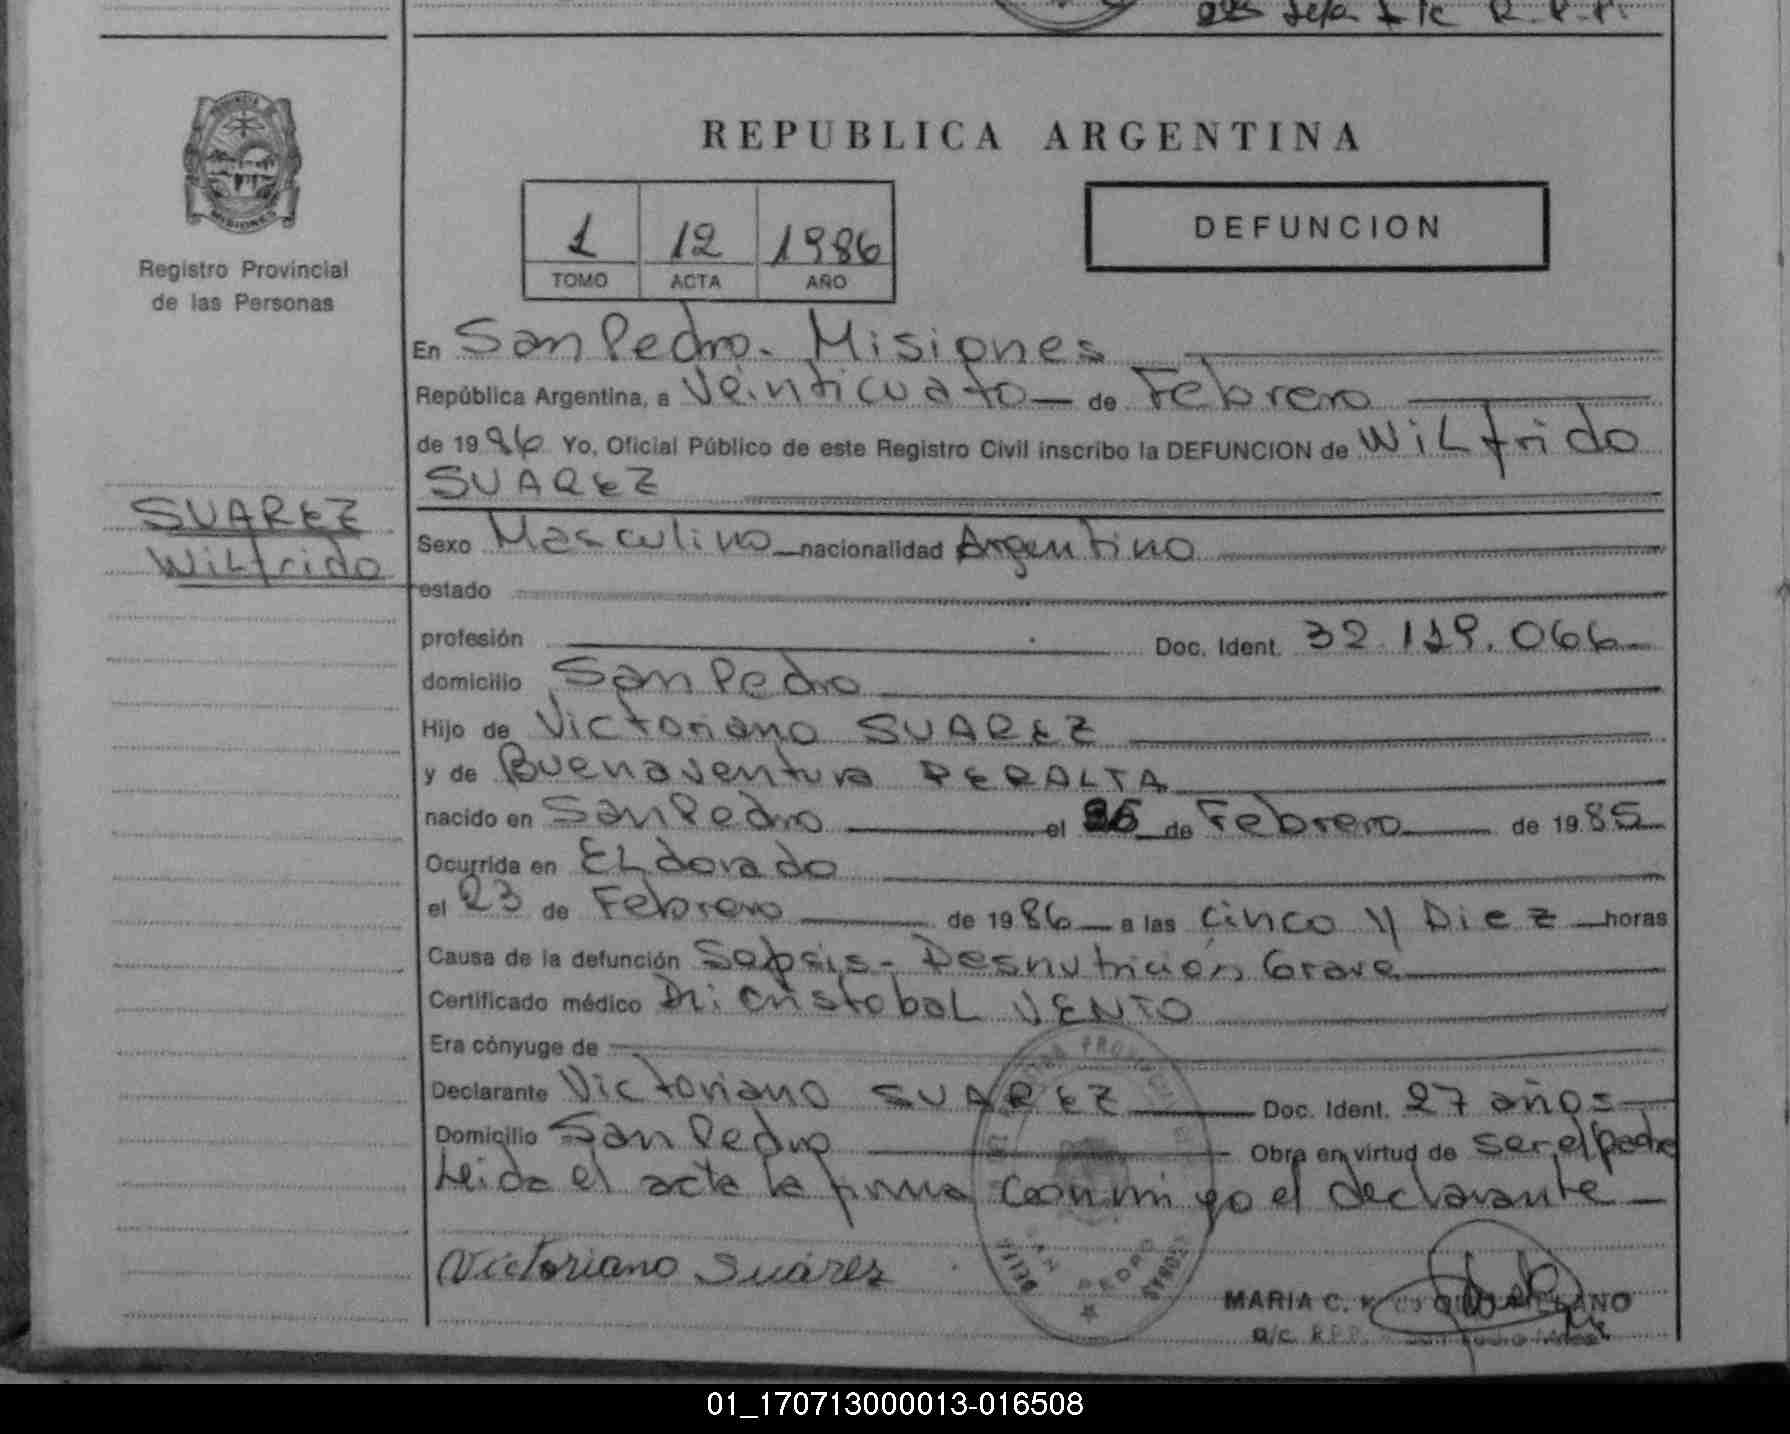 REPUBLICA ARGENTINA
DEFUNCION
1 12 1986
TOMO ACTA AÑO
Registro Provincial
de las Personas
En San Pedro - Misiones
República Argentina, a Veinticuato de Febrero
de 1986 Yo, Oficial Público de este Registro Civil inscribo la DEFUNCION de Wilfrido
SUAREZ
SUAREZ
Wilfrido
Sexo Masculino nacionalidad Argentino
estado
profesión Doc. Ident. 32.119.066
domicilio San Pedro
Hijo de Victoriano SUAREZ
y de Buenaventura PERALTA
nacido en San Pedro el de Febrero de 1985
Ocurrida en Eldorado
el 23 de Febrero de 1986 a las cinco y Diez horas
Causa de la defunción Sepsis - Desnutrición Grave
Certificado médico Dr: Cristobal VENTO
Era cónyuge de
Declarante Victoriano SUAREZ Doc. Ident. 27 años
Domicilio San Pedro Obra en virtud de ser el padre
Leida el acta la firma conmigo el declarante
Victoriano Suárez
SAN PEDRO
MARIA C.
a/c R.P.P.
01_170713000013-016508